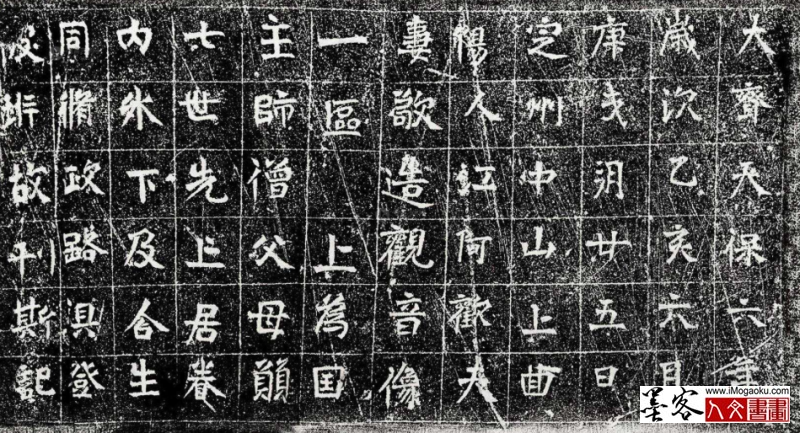 大齊天保六年
歲次乙亥六月
庚戌朔廿五日
定州中山上曲
陽人江阿歡夫
妻敬造觀音像
一區 上為国
主師僧父母願
七世先上居眷
内外下及合生
同脩政路俱登
彼岸故刊斯記
墨客 www.iMogaoku.com
人文書畫